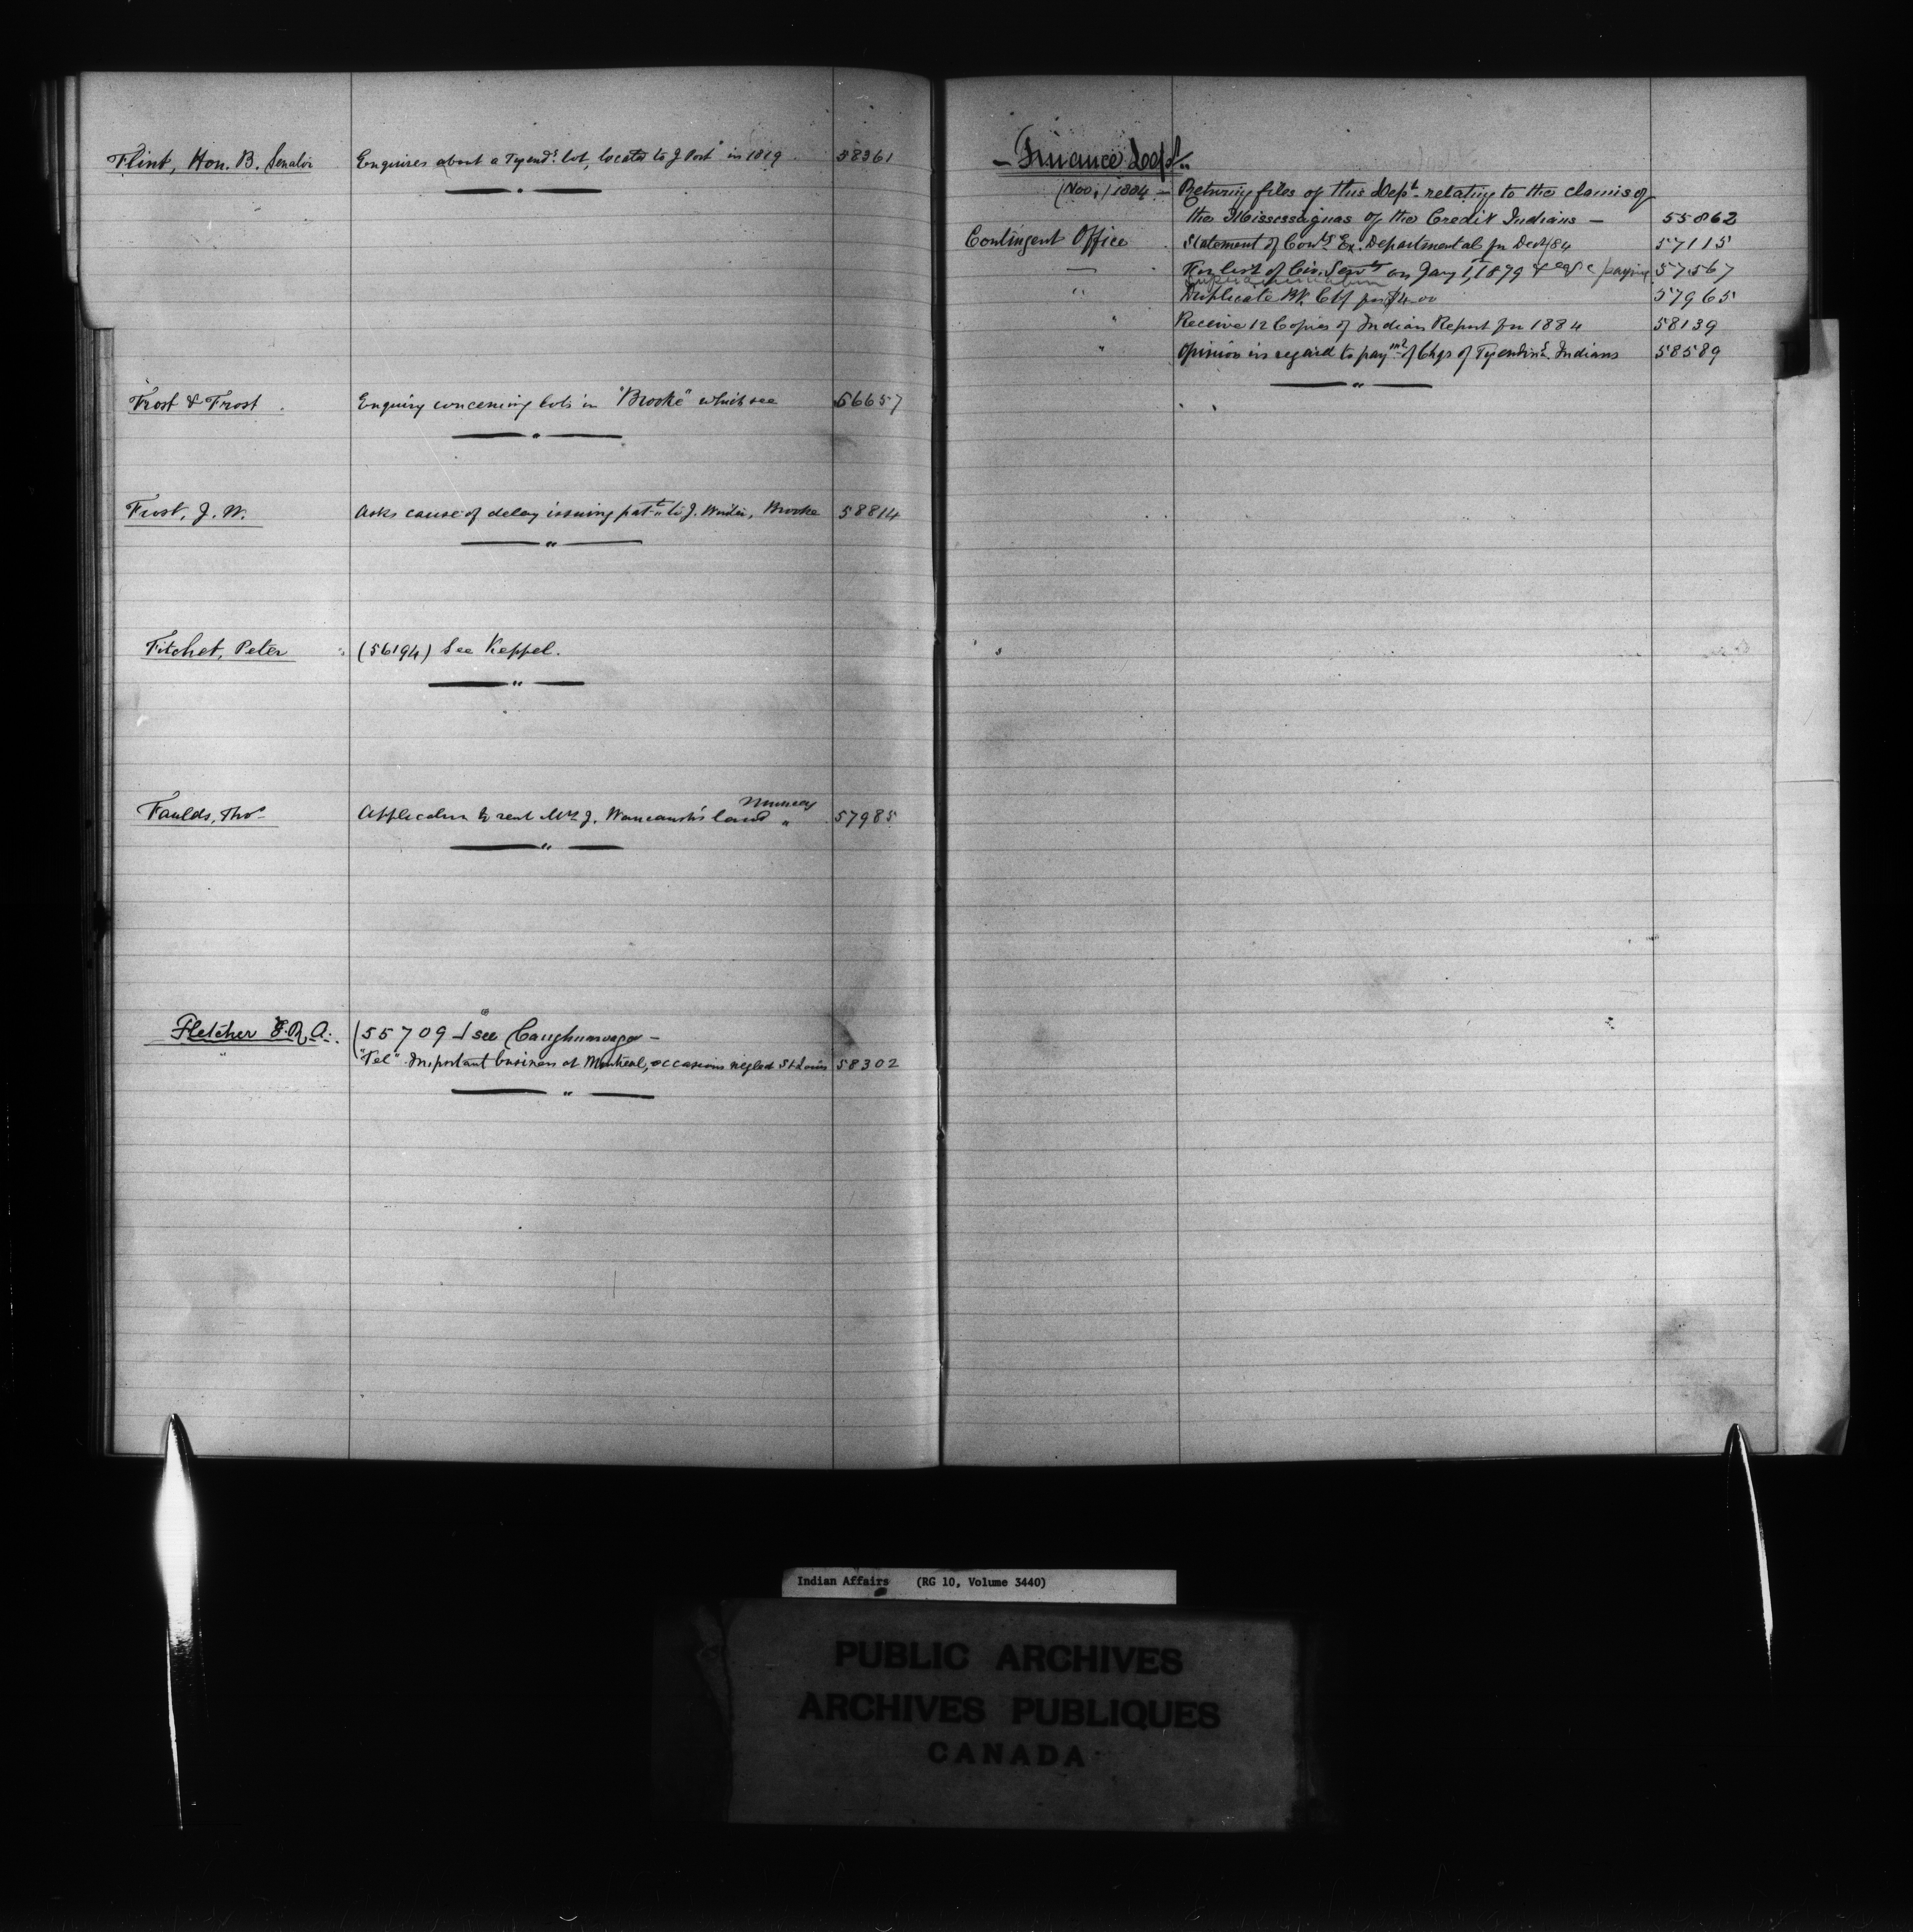 Flint, Hon. B. Senator Enquires about a Tyend^a lot, located to J Post in 1819 58361
Frost & Frost Enquiry concerning lots in "Brooke" which see 56657
Frost, J. W. Asks cause of delay issuing pat^t to J. , Brooke 58814
Fitchet, Peter (56194) See Keppel.
Muncey
Faulds, Tho^s Application to rent Mrs J. land " 57985
Fletcher E. R. A. (55709) see Caughnawaga —
" "Tel" Important business at Montreal, occasions neglect St. Louis 58302
— Finance Dept.
(Nov.) 1884 — Returning files of this Dep^t relating to the claims of
the Mississaguas of the Credit Indians — 55862
Contingent Office Statement of Con^ts Ex. Departmental for Dec/84 57115
— For list of Civ. Serv^ts on Jany 1, 1879 paying 57567
superannuation
" Duplicate Bk. Ctf for $4.00 57965
" Receive 12 Copies of Indian Report for 1884 58139
" Opinion in regard to paym^t of Chgs of Tyendin^a Indians 58589
Indian Affairs (RG 10, Volume 3440)
PUBLIC ARCHIVES
ARCHIVES PUBLIQUES
CANADA